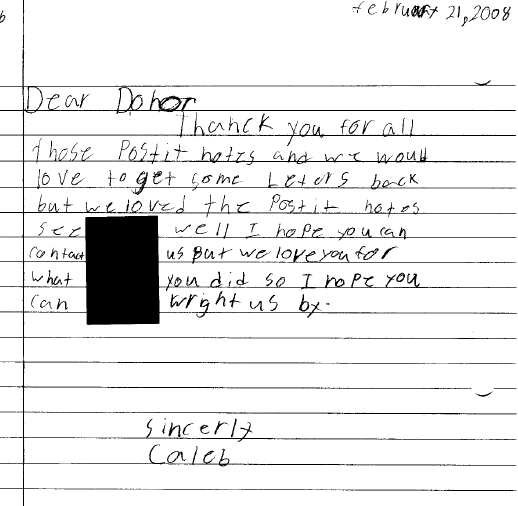 b
february 21, 2008
Dear Donor
Thanck you for all
those Postit notes and we would
love to get some Leters back
but we loved the Postit notes
see well I hope you can
contact us but we love you for
what you did so I hope you
can wright us by.
sincerly
Caleb